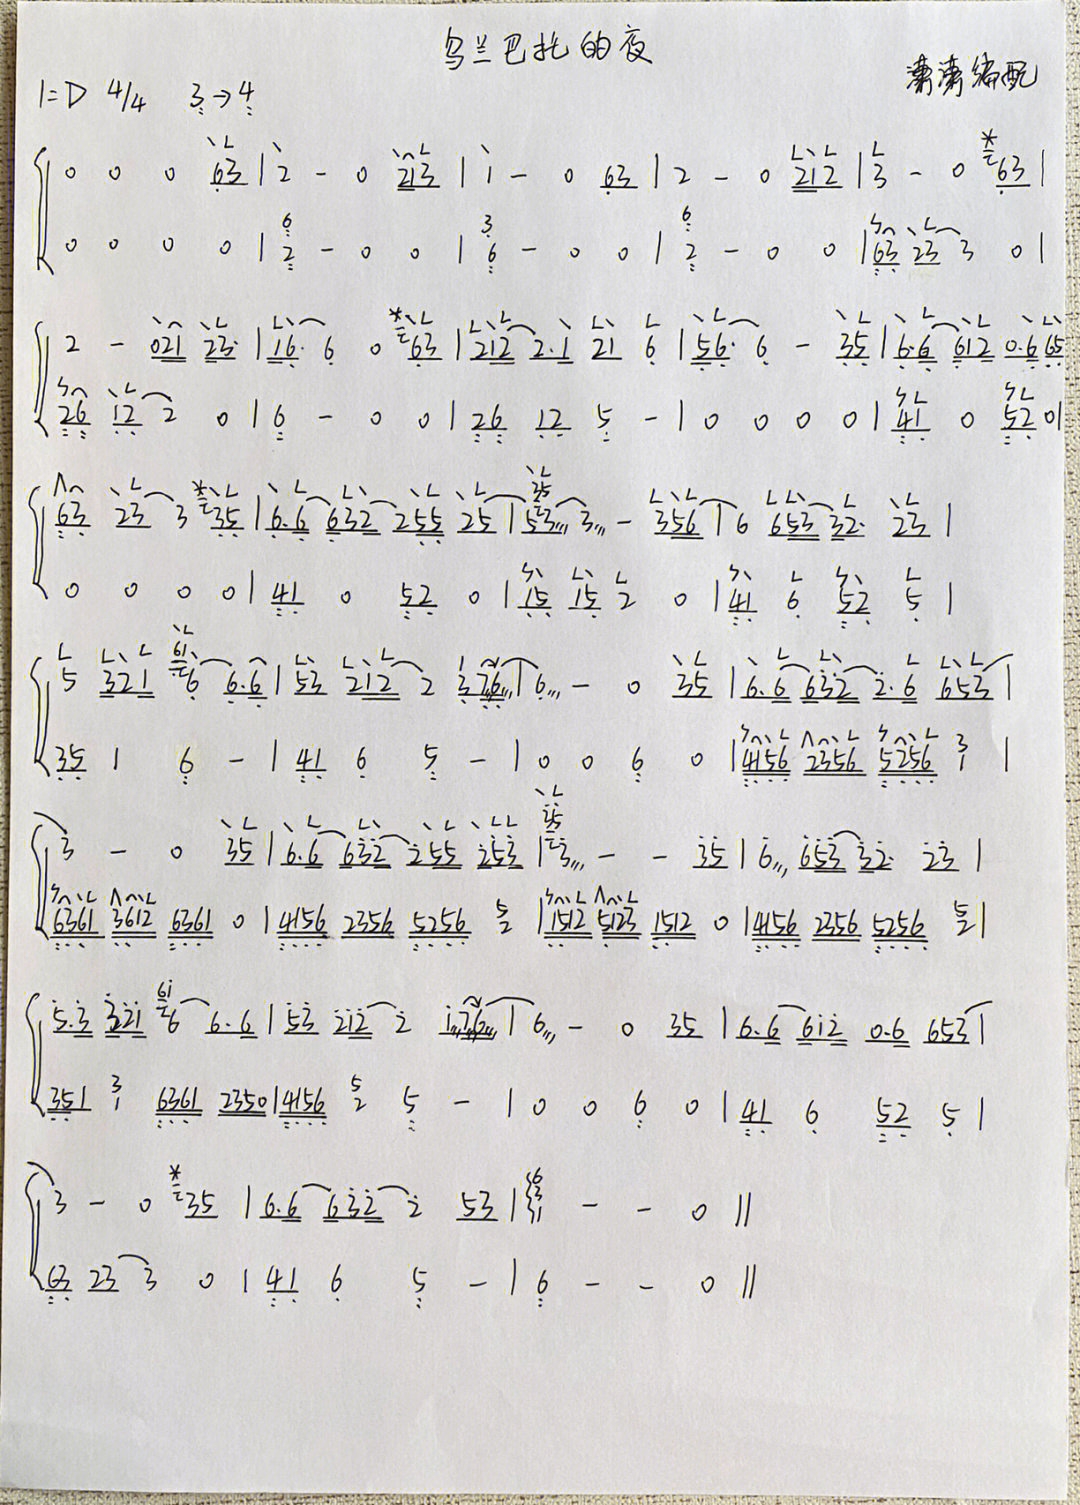 乌兰巴托的夜
潇潇编配
1=D 4/4 3→4
0 0 0 63 | 2 - 0 213 | 1 - 0 63 | 2 - 0 212 | 3 - 0 63 |
0 0 0 0 | 6 2 - 0 0 | 3 6 - 0 0 | 6 2 - 0 0 | 63 23 3 0 |
2 - 021 23· | 16· 6 0 63 | 212 2·1 21 6 | 56· 6 - 35 | 6·6 612 0·6 65
26 12 2 0 | 6 - 0 0 | 26 12 5 - | 0 0 0 0 | 41 0 52 0 |
63 23 3 35 | 6·6 632 255 25 | 35 53 3 - 356 | 6 653 32· 23 |
0 0 0 0 | 41 0 52 0 | 15 15 2 0 | 41 6 52 5 |
5 321 61 6 6·6 | 53 212 2 1 76 | 6 - 0 35 | 6·6 632 2·6 653 |
35 1 6 - | 41 6 5 - | 0 0 6 0 | 4156 2356 5256 3 1 |
3 - 0 35 | 6·6 632 255 253 | 35 3 - - 35 | 6 653 32· 23 |
6361 3612 6361 0 | 4156 2356 5256 5 2 | 1512 5123 1512 0 | 4156 2356 5256 5 2 |
5·3 321 61 6 6·6 | 53 212 2 1 76 | 6 - 0 35 | 6·6 612 0·6 653 |
351 3 1 6361 2350 | 4156 5 2 5 - | 0 0 6 0 | 41 6 52 5 |
3 - 0 35 | 6·6 632 2 53 | 6 3 1 - - 0 ||
63 23 3 0 | 41 6 5 - | 6 - - 0 ||